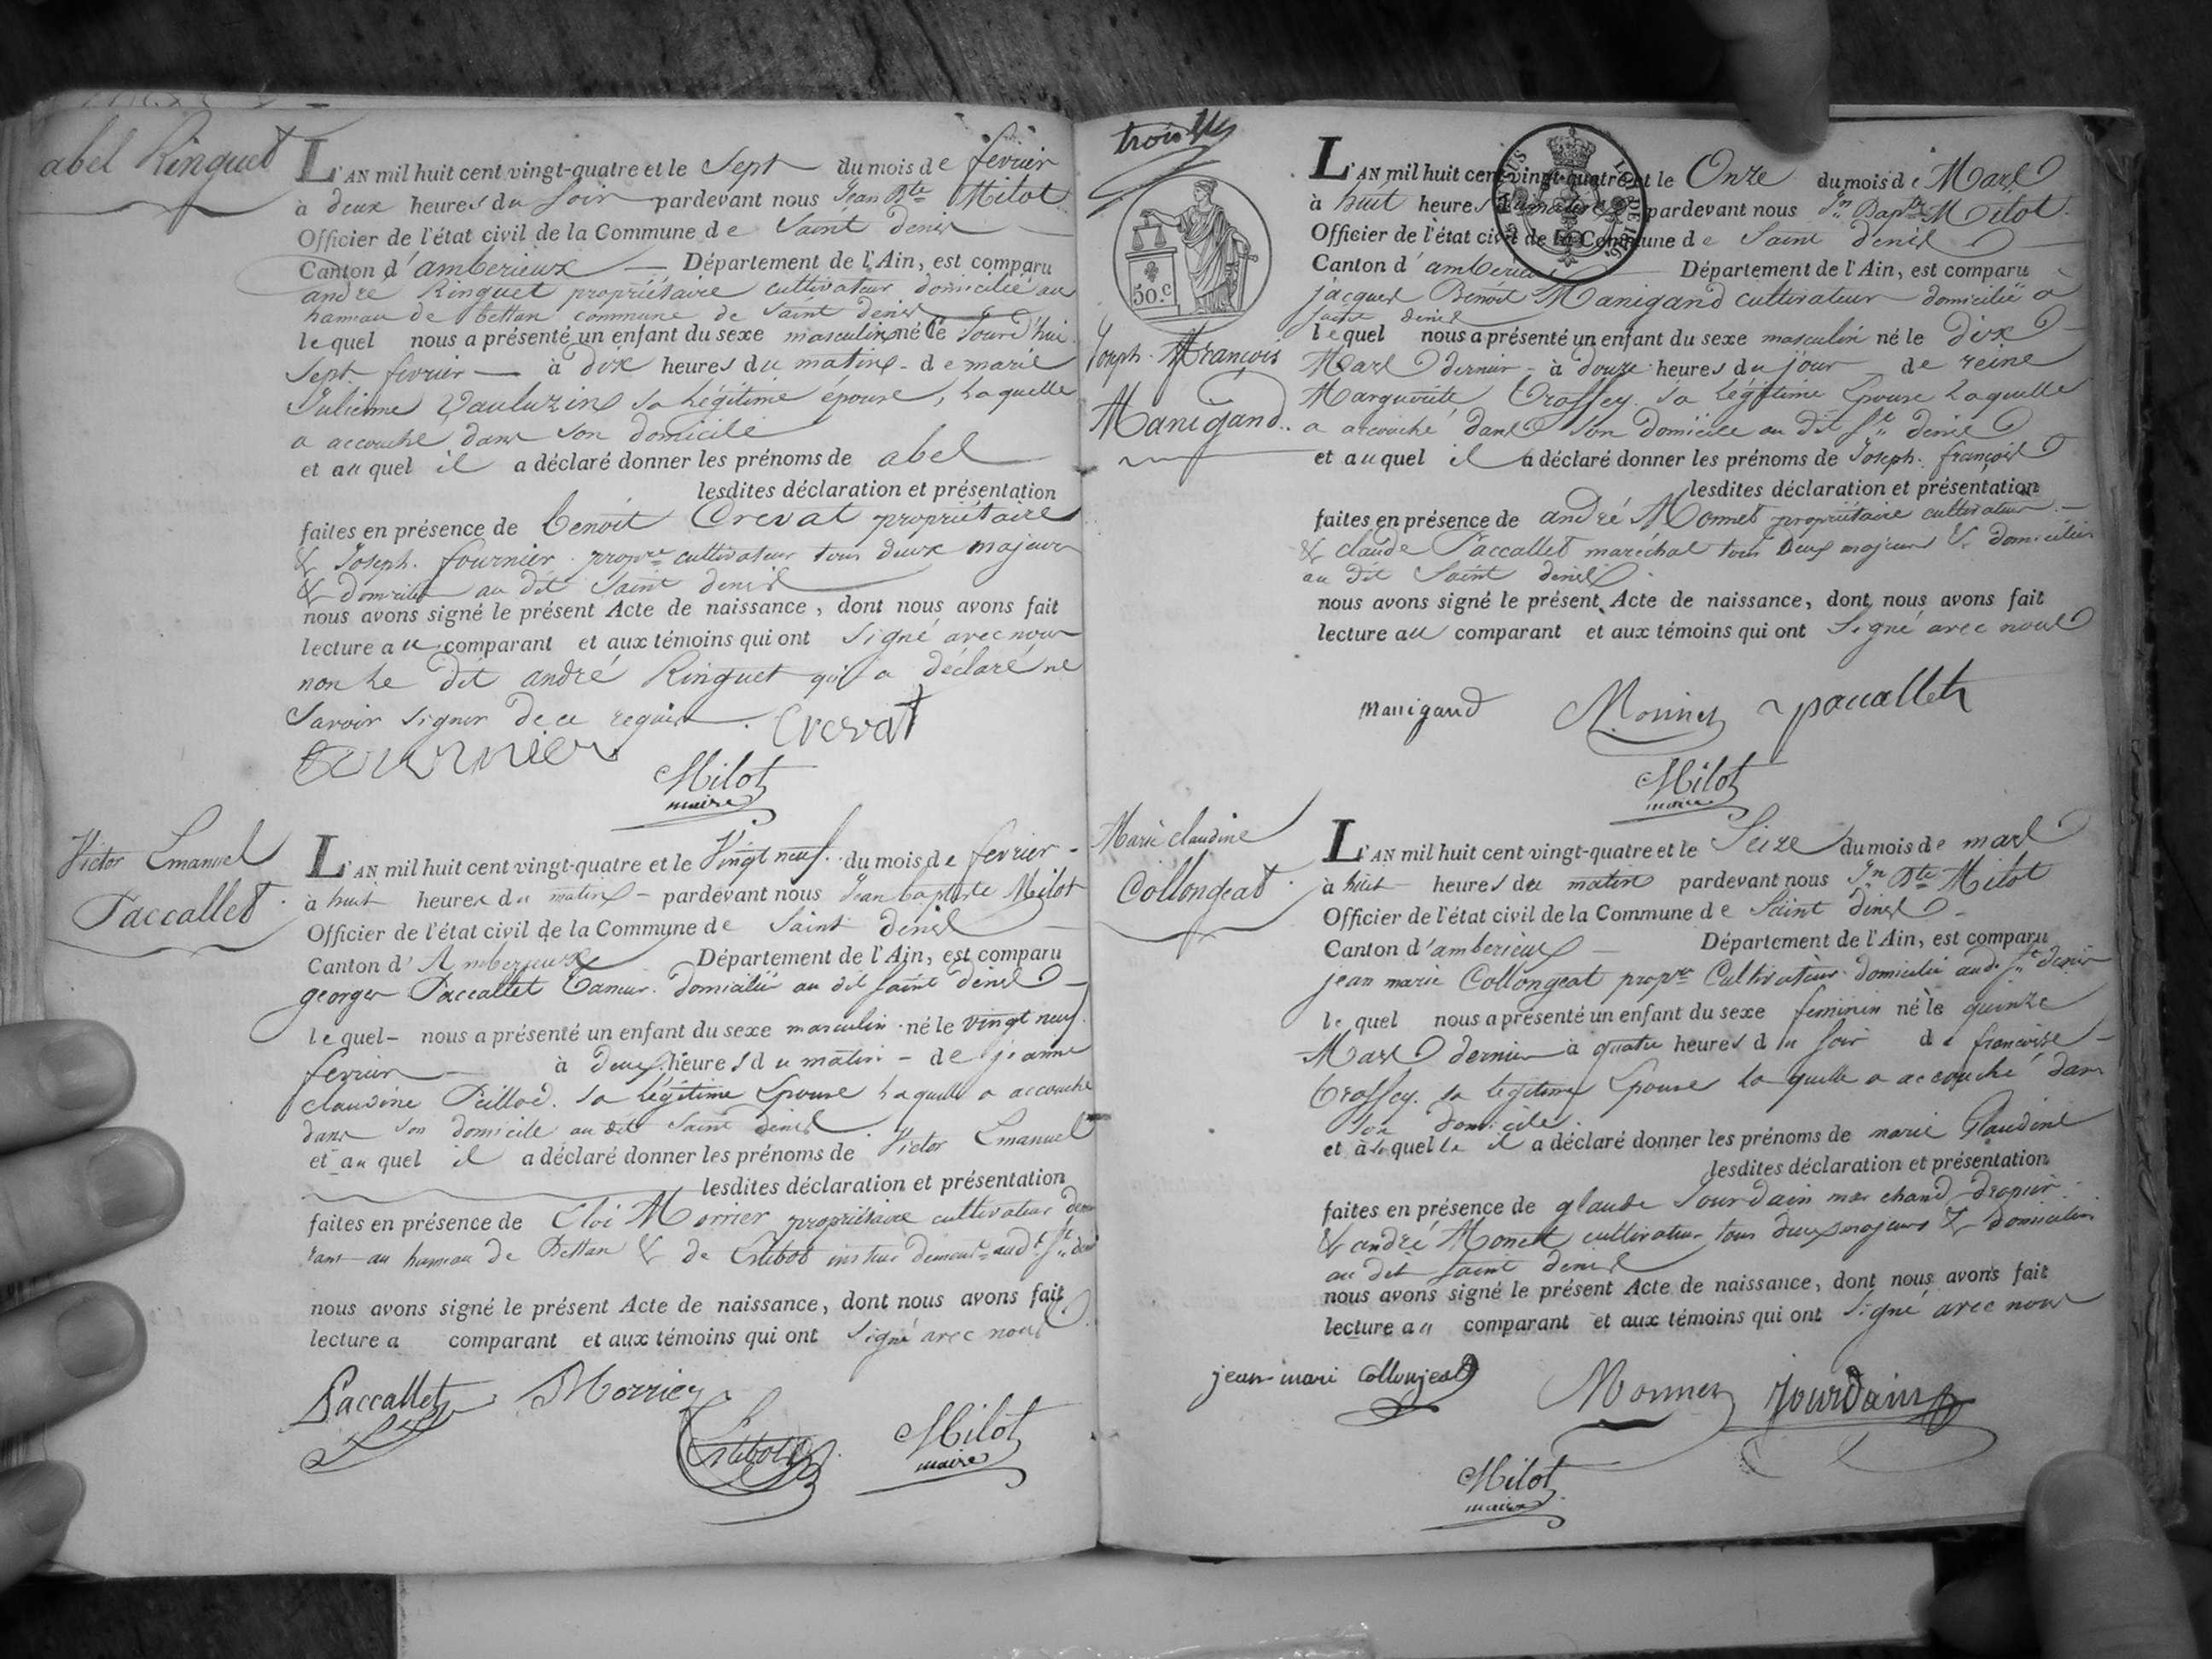 abel Ringuet
L'AN mil huit cent vingt-quatre et le Sept du mois de février
à deux heures du soir pardevant nous Jean Bte Milot
Officier de l'état civil de la Commune de Saint denis
Canton d'amberieux Département de l'Ain, est comparu
andré Ringuet propriétaire cultivateur domicilié au
hameau de bettan commune de Saint denis
lequel nous a présenté un enfant du sexe masculin né le Jourd'hui
Sept fevrier à dix heures du matin de marie
Julienne Vauluzin sa légitime épouse, laquelle
a accouché dans son domicile
et auquel il a déclaré donner les prénoms de abel
lesdites déclaration et présentation
faites en présence de benoit Crevat propriétaire
& Joseph fournier propre cultivateur tous deux majeurs
& domiciliés au dit Saint denis
nous avons signé le présent Acte de naissance, dont nous avons fait
lecture au comparant et aux témoins qui ont signé avec nous
non le dit andré Ringuet qui a déclaré ne
savoir signer de ce requis. Crevat
fournier
Milot
maire
Victor Emanuel
Paccallet
L'AN mil huit cent vingt-quatre et le Vingt neuf du mois de fevrier
à huit heures du matin pardevant nous Jean baptiste Milot
Officier de l'état civil de la Commune de Saint denis
Canton d'Amberieux Département de l'Ain, est comparu
george Paccallet domicilié au dit saint denis
lequel nous a présenté un enfant du sexe masculin né le vingt neuf
fevrier à deux heures du matin de jeanne
claudine Pillod sa légitime Epouse laquelle a accouché
dans son domicile au dit Saint denis
et auquel il a déclaré donner les prénoms de Victor Emanuel
lesdites déclaration et présentation
faites en présence de Eloi Morrier propriétaire cultivateur demeu
rant au hameau de Bettan & de
nous avons signé le présent Acte de naissance, dont nous avons fait
lecture a comparant et aux témoins qui ont signé avec nous
Paccallet Morrier
Milot
maire
trois
50.c
Joseph François
Manigand
L'AN mil huit cent vingt-quatre et le Onze du mois de Mars
à huit heures du matin pardevant nous Jn Bapte Milot
Officier de l'état civil de la Commune de Saint denis
Canton d'amberieux Département de l'Ain, est comparu
jacques Benoit Manigand cultivateur domicilié a
saint denis
lequel nous a présenté un enfant du sexe masculin né le dix
Mars dernier à douze heures du jour de reine
Marguerite Crossey sa légitime Epouse laquelle
a accouché dans son domicile au dit St denis
et auquel il a déclaré donner les prénoms de Joseph françois
lesdites déclaration et présentation
faites en présence de andré Monnet propriétaire cultivateur
& claude Paccallet maréchal tous deux majeurs & domiciliés
au dit Saint denis
nous avons signé le présent Acte de naissance, dont nous avons fait
lecture au comparant et aux témoins qui ont signé avec nous
manigand Monnet paccallet
Milot
maire
Marie claudine
Collongeat
L'AN mil huit cent vingt-quatre et le Seize du mois de mars
à huit heures du matin pardevant nous Jn Bte Milot
Officier de l'état civil de la Commune de Saint denis
Canton d'amberieux Département de l'Ain, est comparu
jean marie Collongeat propre Cultivateur domicilié aud. St denis
lequel nous a présenté un enfant du sexe feminin né le quinze
Mars dernier à quatre heures du soir de francoise
Crossey sa legitime Epouse laquelle a accouché dans
son domicile
et à laquelle il a déclaré donner les prénoms de marie Claudine
lesdites déclaration et présentation
faites en présence de glaude Jourdain marchand drapier
& andré Monet cultivateur tous deux majeurs & domiciliés
au dit saint denis
nous avons signé le présent Acte de naissance, dont nous avons fait
lecture au comparant et aux témoins qui ont signé avec nous
jean-mari Collonjeat Monnet Jourdain
Milot
maire